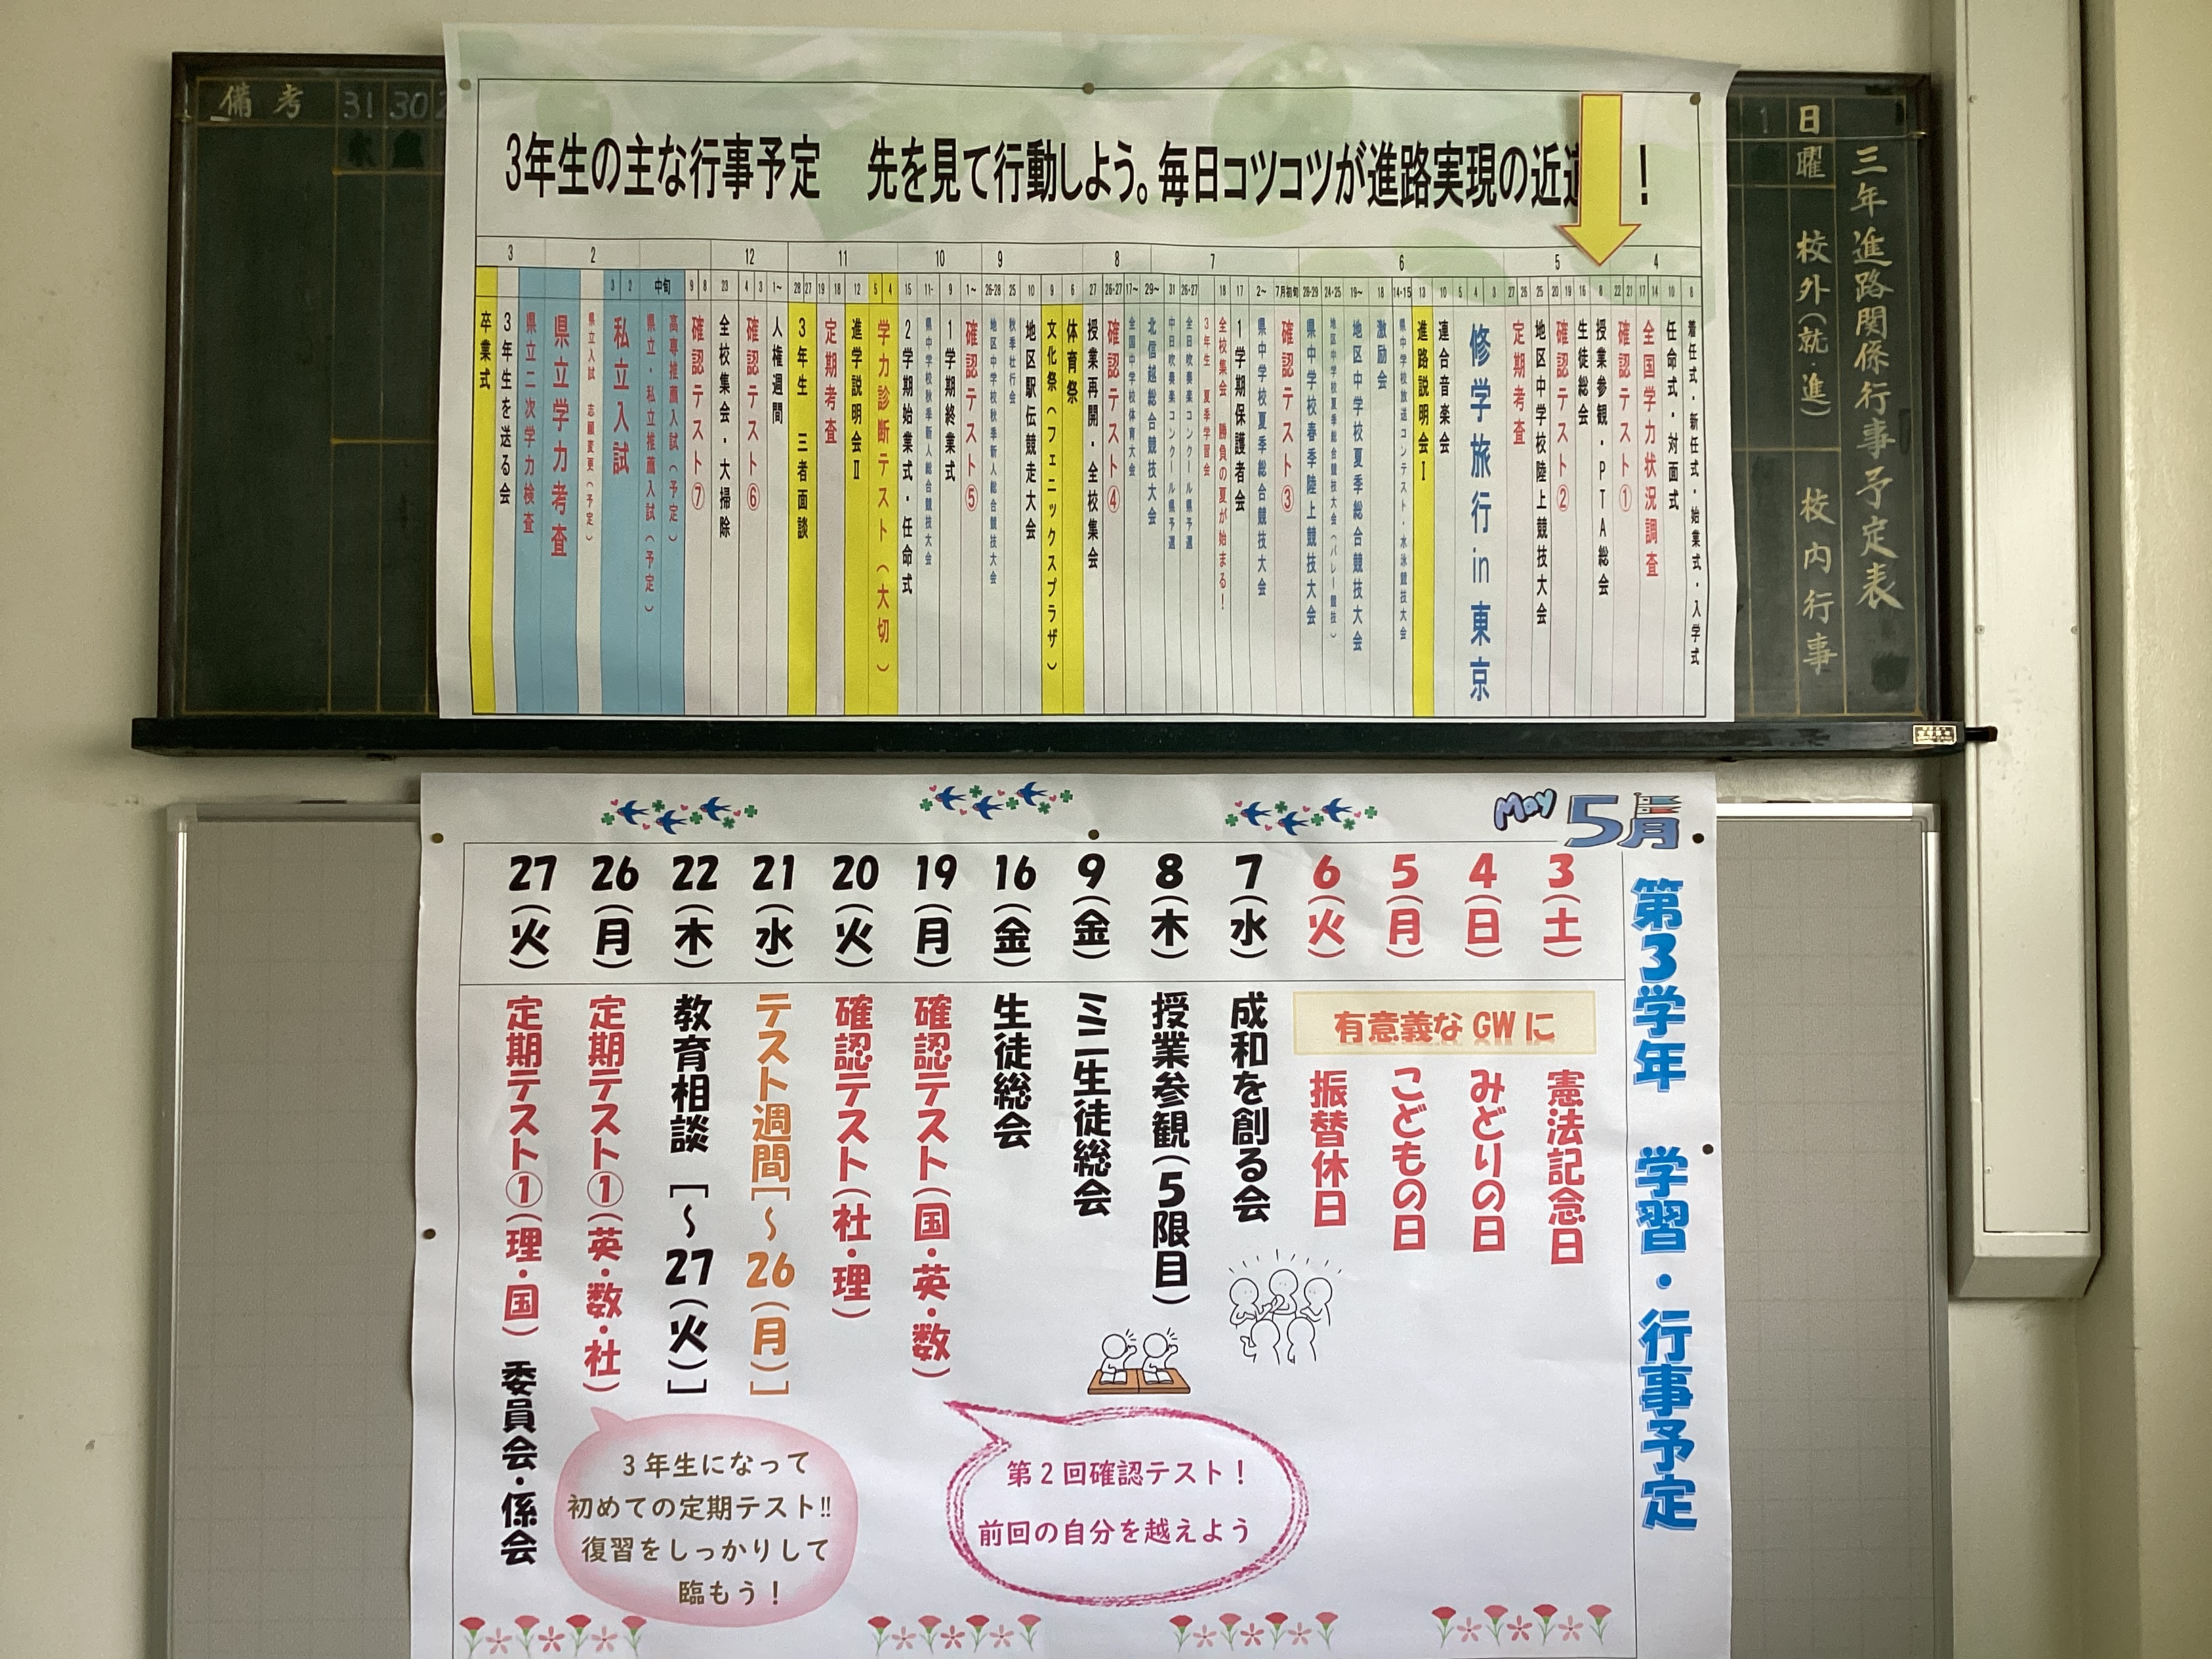 備考
31
30
日
曜
校外(就・進)
校内行事
三年進路関係行事予定表
3年生の主な行事予定 先を見て行動しよう。毎日コツコツが進路実現の近道!
4
8 着任式・新任式・始業式・入学式
10 任命式・対面式
14 17 全国学力状況調査
21 22 確認テスト①
5
8 授業参観・PTA総会
16 生徒総会
19 20 確認テスト②
25 地区中学校陸上競技大会
26 27 定期考査
6
3 4 5 修学旅行 in 東京
10 連合音楽会
13 進路説明会Ⅰ
14-15 県中学校放送コンテスト・水泳競技大会
18 激励会
19~ 地区中学校夏季総合競技大会
24-25 地区中学校夏季総合競技大会(バレー競技)
28-29 県中学校春季陸上競技大会
7
7月初旬 確認テスト③
2~ 県中学校夏季総合競技大会
17 1学期保護者会
18 全校集会 勝負の夏が始まる!
3年生 夏季学習会
26-27 全日吹奏楽コンクール県予選
31 中日吹奏楽コンクール県予選
29~ 北信越総合競技大会
8
17~ 全国中学校体育大会
26-27 確認テスト④
27 授業再開・全校集会
9
6 体育祭
9 文化祭(フェニックスプラザ)
10 地区駅伝競走大会
25 秋季壮行会
26-28 地区中学校秋季新人総合競技大会
10
1~ 確認テスト⑤
9 1学期終業式
11- 県中学校秋季新人総合競技大会
15 2学期始業式・任命式
11
4 5 学力診断テスト(大切)
12 進学説明会Ⅱ
18 19 定期考査
27 28 3年生 三者面談
12
1~ 人権週間
3 4 確認テスト⑥
23 全校集会・大掃除
8 9 確認テスト⑦
2
中旬 高専推薦入試(予定)
県立・私立推薦入試(予定)
2 3 私立入試
県立入試 志願変更(予定)
県立学力考査
3
県立二次学力検査
3年生を送る会
卒業式
May 5月
第3学年 学習・行事予定
有意義なGWに
3(土) 憲法記念日
4(日) みどりの日
5(月) こどもの日
6(火) 振替休日
7(水) 成和を創る会
8(木) 授業参観(5限目)
9(金) ミニ生徒総会
16(金) 生徒総会
19(月) 確認テスト(国・英・数)
20(火) 確認テスト(社・理)
21(水) テスト週間[~26(月)]
22(木) 教育相談[~27(火)]
26(月) 定期テスト①(英・数・社)
27(火) 定期テスト①(理・国) 委員会・係会
第2回確認テスト!
前回の自分を越えよう
3年生になって
初めての定期テスト!!
復習をしっかりして
臨もう!